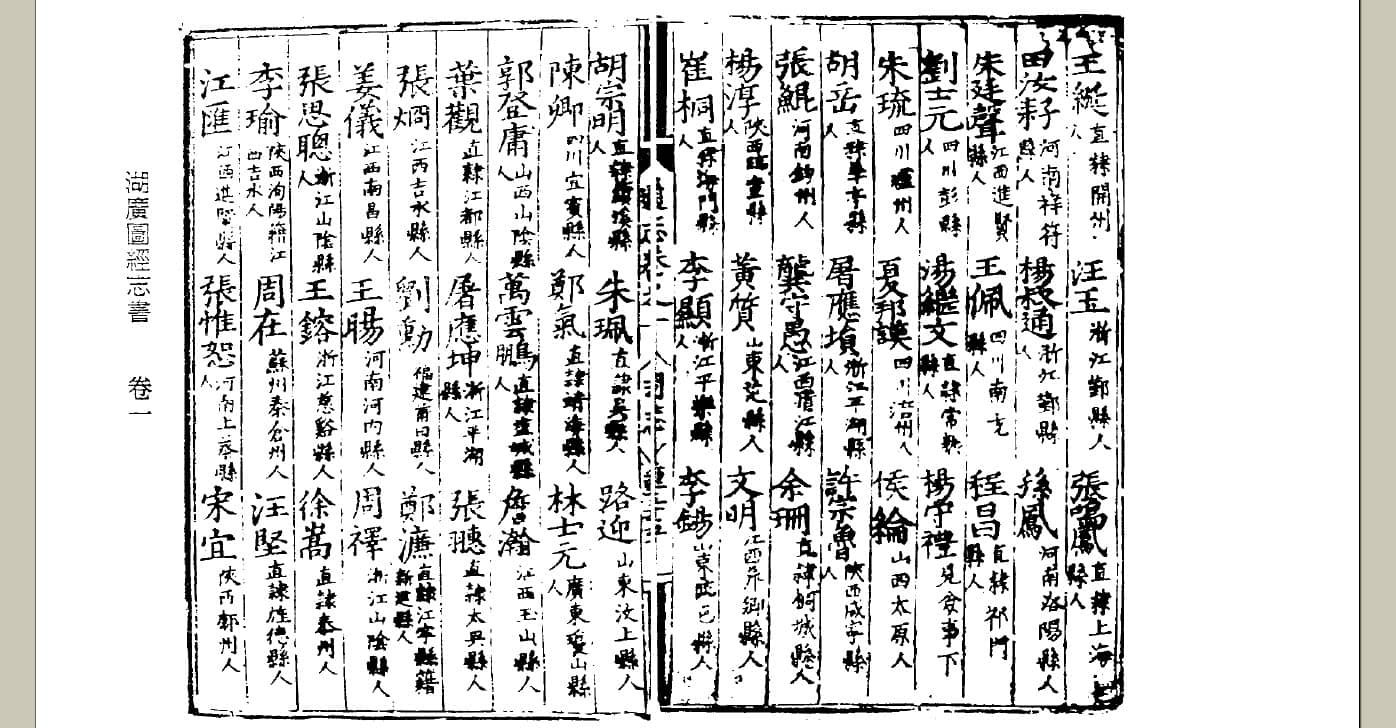 王綖直隸開州人 汪玉浙江鄞縣人 張鳴鳳直隸上海縣人
田汝耔河南祥符縣人 楊叔通浙江鄞縣人 孫鳳河南洛陽縣人
朱廷聲江西進賢縣人 王佩四川南充縣人 程昌直隸祁門縣人
劉士元四川彭縣人 湯繼文直隸常熟縣人 楊守禮見僉事下
朱琉四川瀘州人 夏邦謨四川涪州人 侯綸山西太原人
胡岳直隸華亭縣人 屠應塤浙江平湖縣人 許宗魯陝西咸寧縣人
張鯤河南鈞州人 龔守愚江西清江縣人 余珊直隸桐城縣人
楊淳陝西臨潼縣人 黃質山東范縣人 文明江西萍鄉縣人
崔桐直隸海門縣人 李顯浙江平樂縣人 李錫山東縣人
胡宗明直隸績溪縣人 朱珮直隸吳縣人 路迎山東汶上縣人
陳卿四川宜賓縣人 鄭氣直隸靖海縣人 林士元廣東瓊山縣人
郭登庸山西山陰縣人 萬雲鵬直隸縣人 詹瀚江西玉山縣人
葉觀直隸江都縣人 屠應坤浙江平湖縣人 張聰直隸太縣人
張烱江西吉水縣人 劉勳福建莆田縣人 鄭濂直隸江寧縣籍新縣人
姜儀江西南昌縣人 王暘河南河內縣人 周禕浙江山陰縣人
張思聰浙江山陰縣人 王鎔浙江慈谿縣人 徐嵩直隸泰州人
李瑜陝西洵陽籍江西吉水人 周在蘇州泰倉州人 汪堅直隸旌德縣人
江匯江西進賢縣人 張惟恕河南上蔡縣人 宋宜陝西鄜州人
湖廣圖經志書 卷一